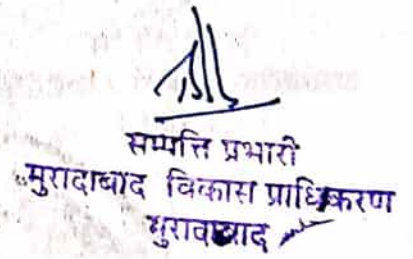 सम्पत्ति प्रभारी
मुरादाबाद विकास प्राधिकरण
मुरादाबाद